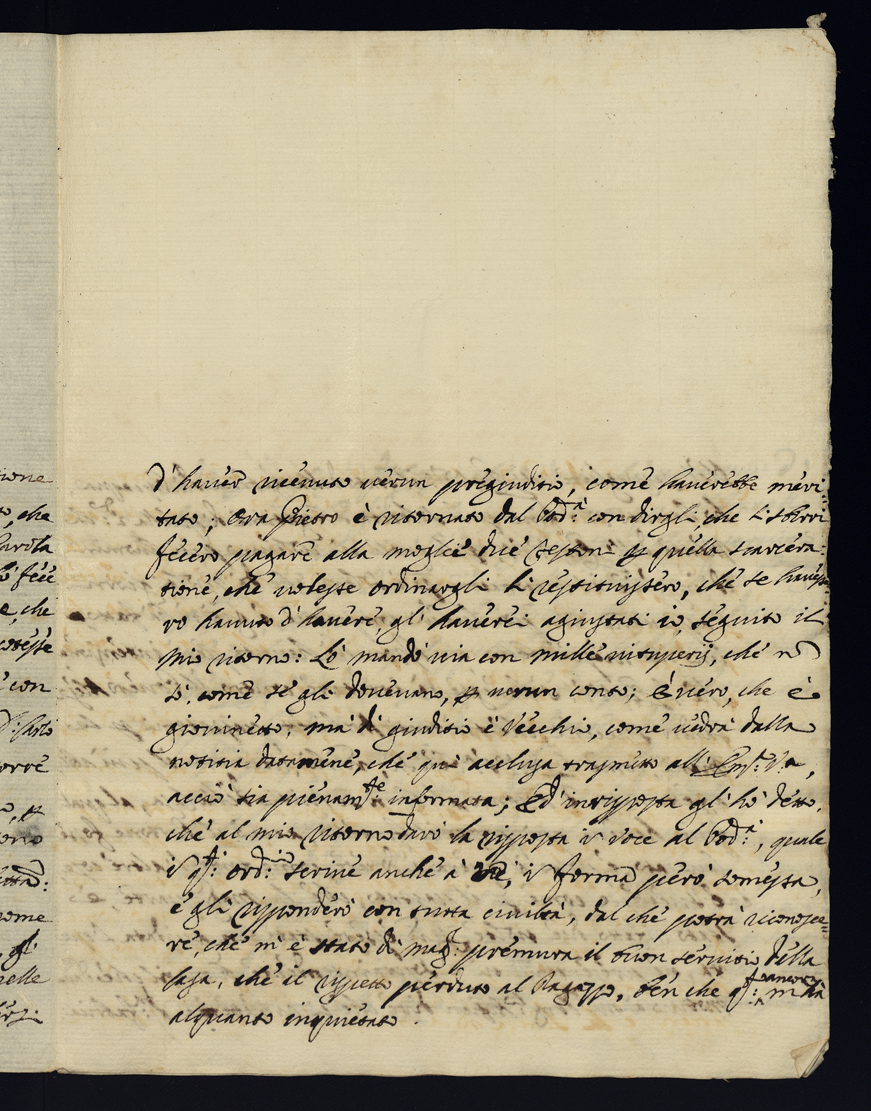 d'haver ricevuto verun pregiuditio, come haverebbe meri-
tato; Ora Pietro è ritornato dal Pod:à con dirgli, che li sbirri
fecero pagare alla moglie due testoni p quella scarcera-
tione, che volesse ordinargli li restituissero, che se havesse-
ro havuto d'havere, gl'haverei agiustati io, seguito il
mio ritorno: Lo mandò via con mille vituperij, che nō
sò, come se gli dovevano, p verun conto; è vero, che è
giovinetto, mà di giuditio è vecchio, come vedrà dalla
notitia datamene, che quì acclusa trasmetto all'Em:za V:ra,
acciò sia pienam:te informata; Ed in risposta gl'hò detto,
che al mio ritorno darò la risposta in voce al Pod:à, quale
in q:to ord:rio scrive anche à me, in forma però somessa,
e gli risponderò con tutta civiltà, dal che potrà riconosce-
re, che m'è stato di mag:r premura il buon servitio della
Casa, che il rispetto perduto al Ragazzo, ben che q:to ancora m'hà
alquanto inquietato.
ione
o, che
Carità
fece
e, che
potesse
con
orre
p
ome
gl'
nelle